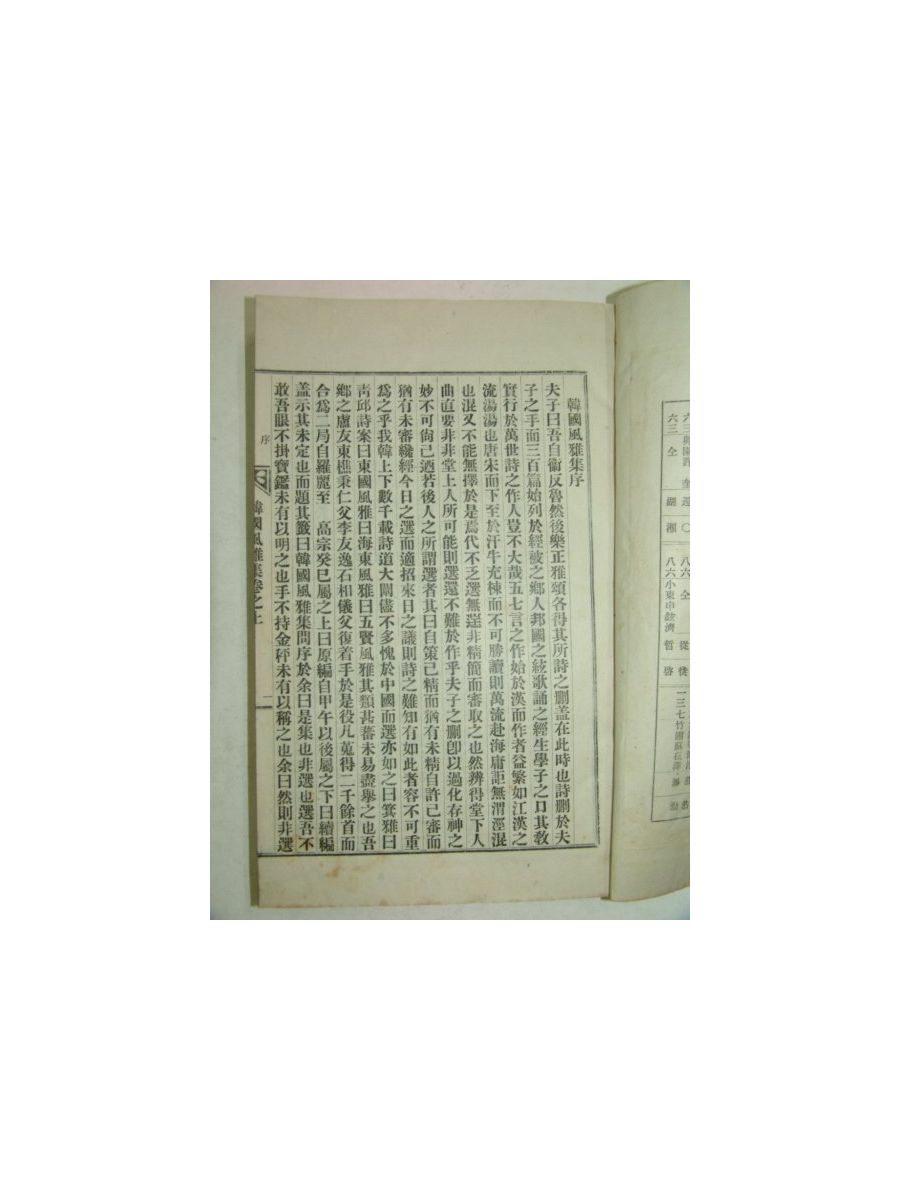 韓國風雅集序
夫子曰吾自衞反魯然後樂正雅頌各得其所詩之刪蓋在此時也詩刪於夫
子之手而三百篇始列於經被之鄉人邦國之絃歌誦之經生學子之口其敎
實行於萬世詩之作人豈不大哉五七言之作始於漢而作者益繁如江漢之
流湯湯也唐宋而下至於汗牛充棟而不可勝讀則萬流赴海庸詎無渭涇混
也混又不能無擇於是焉代不乏選無選非精簡而審取之也然辨得堂下人
曲直要非非堂上人所可能則選還不難於作乎夫子之刪卽以過化存神之
妙不可尙已遒若後人之所謂選者其曰自策己精而猶有未精自許己審而
猶有未審纔經今日之選而適招來日之議則詩之難知有如此者容不可重
爲之乎我韓上下數千載詩道大闡儘不多愧於中國而選亦如之曰箕雅曰
靑邱詩案曰東國風雅曰海東風雅曰五賢風雅其類甚蕃未易盡擧之也吾
鄉之盧友東樵秉仁父李友逸石相儀父復着手於是役凡蒐得二千餘首而
合爲二局自羅麗至 高宗癸巳屬之上曰原編自甲午以後屬之下曰續編
蓋示其未定也而題其籤曰韓國風雅集問序於余曰是集也非選也選吾不
敢吾眼不掛寶鑑未有以明之也手不持金秤未有以稱之也余曰然則非選
序
韓國風雅集卷之上
二
六三 仝
湖 湘
八六 仝
八六 小東申鉉濟
從
哲 啓
一三七 竹圃